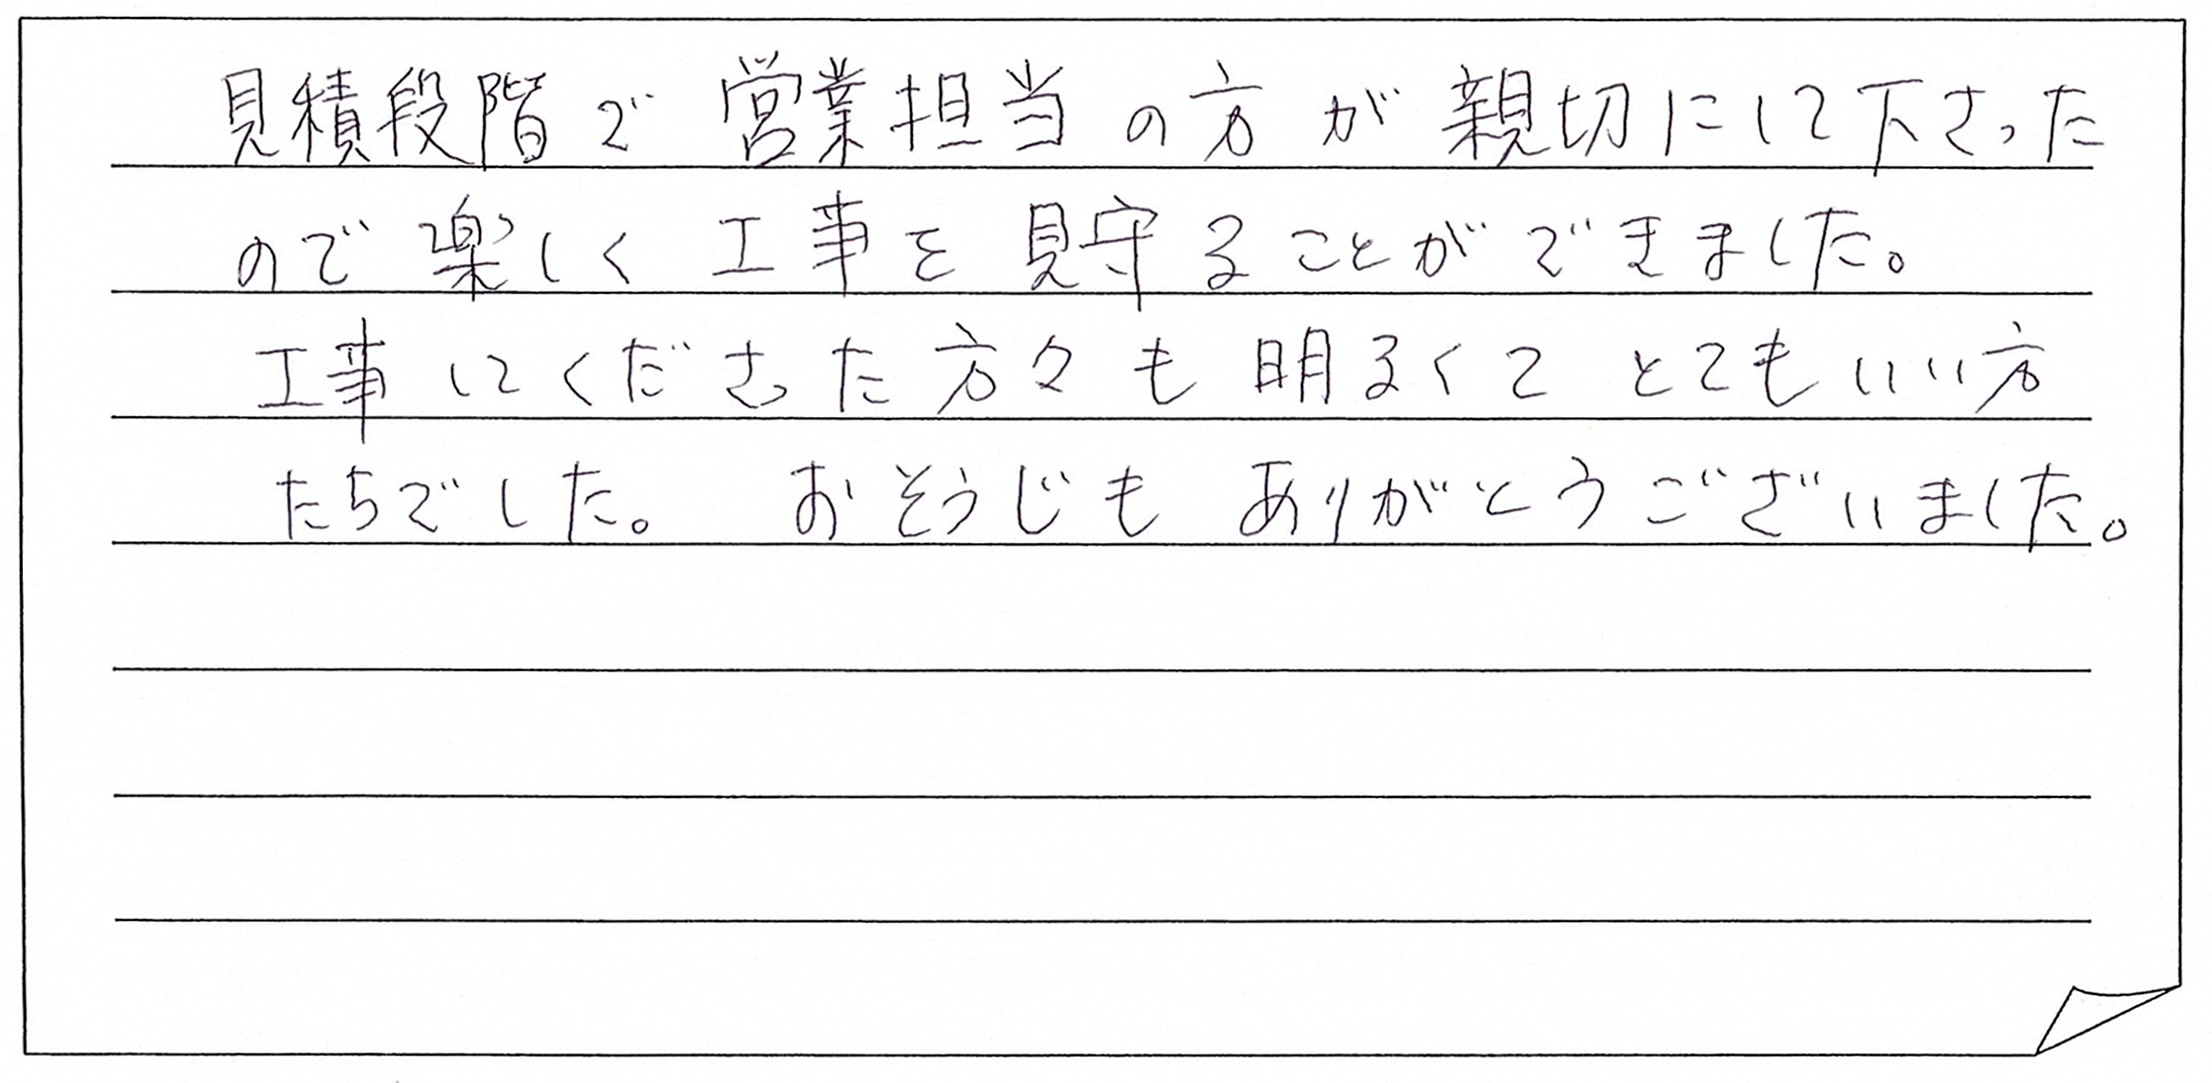 見積段階で営業担当の方が親切にして下さった
ので楽しく工事を見守ることができました。
工事してくださった方々も明るくてとてもいい方
たちでした。 おそうじもありがとうございました。